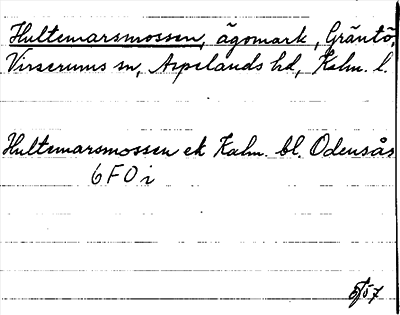 Hultemarsmossen, ägomark, Gräntö,
Virserums sn, Aspelands hd, Kalm. l.
Hultemarsmossen ek Kalm. bl. Odensås
6F0i